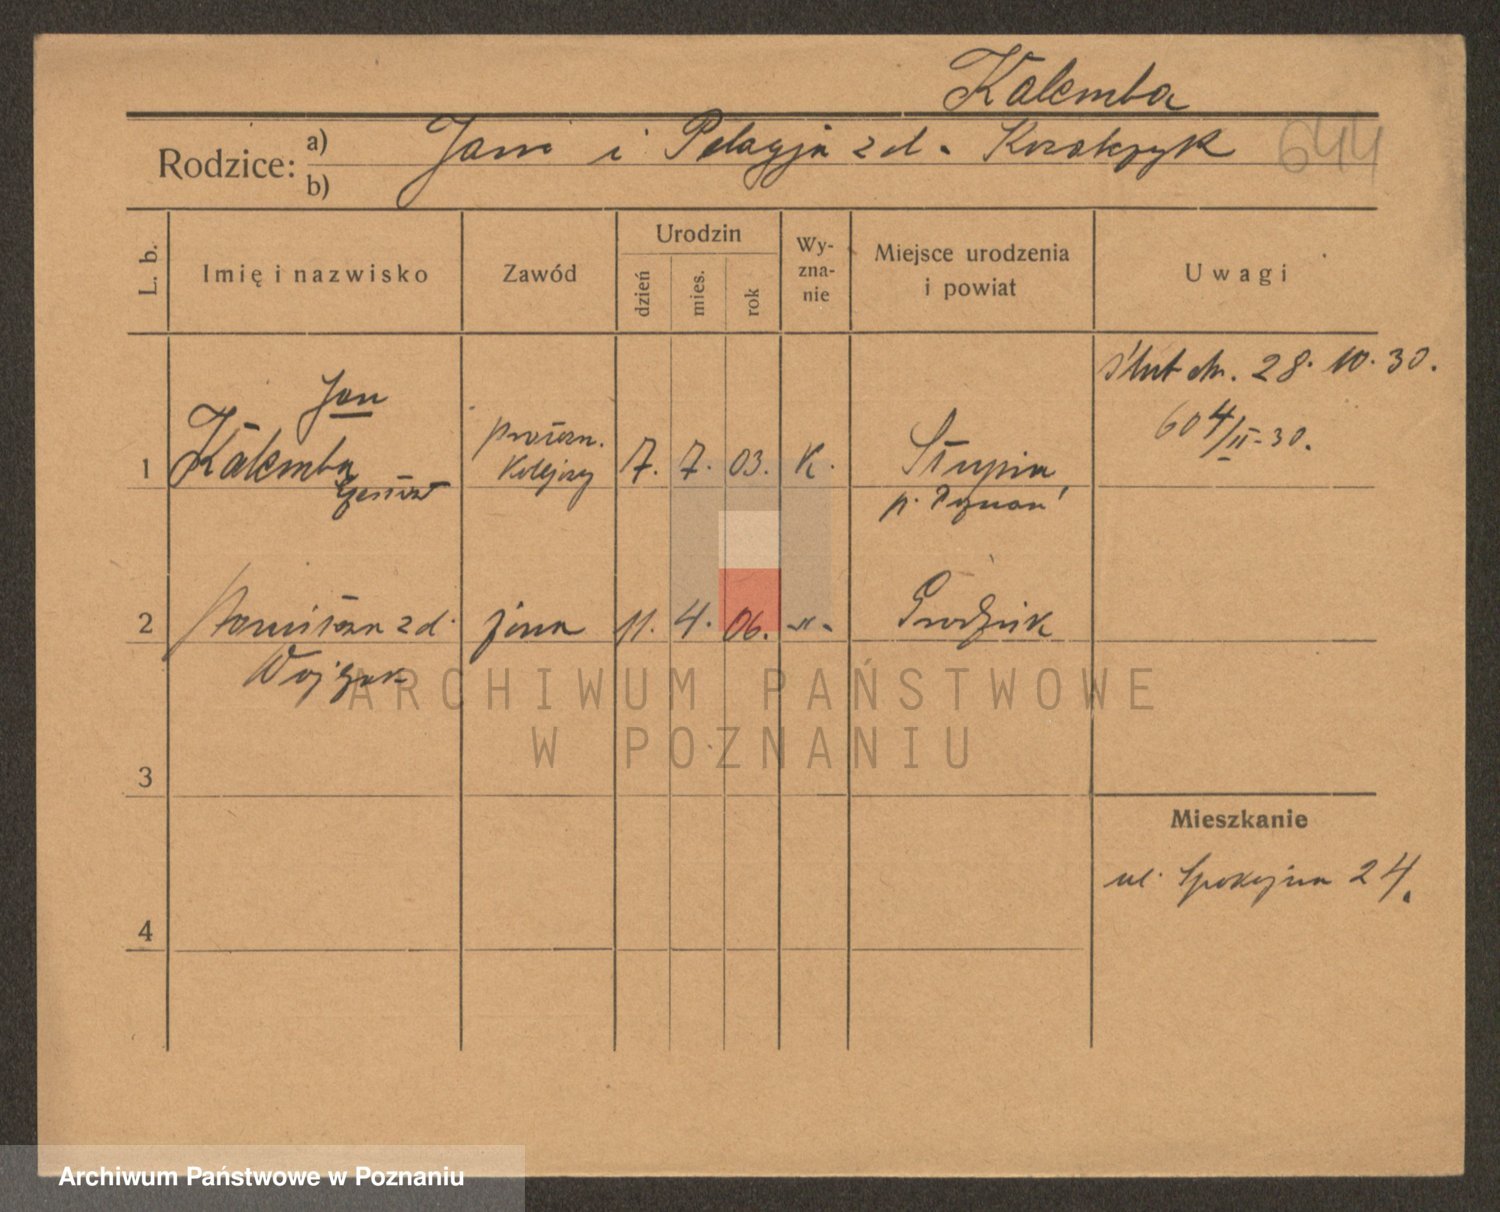 Kalemba
Rodzice: a) Jan i Pelagja z d. 644
b)
L. b. Imię i nazwisko Zawód Urodzin dzień mies. rok Wy-zna-nie Miejsce urodzenia i powiat Uwagi
ślub dn. 28. 10. 30.
604/II-30.
Jan
1 Kalemba 7. 7. 03. K. Słupia
p. Poznań
2 Stanisława z d. żona 11. 4. 06. -"- Grodzisk
Wojtkowiak
3
Mieszkanie
ul. Spokojna 24.
4
ARCHIWUM PAŃSTWOWE
W POZNANIU
Archiwum Państwowe w Poznaniu